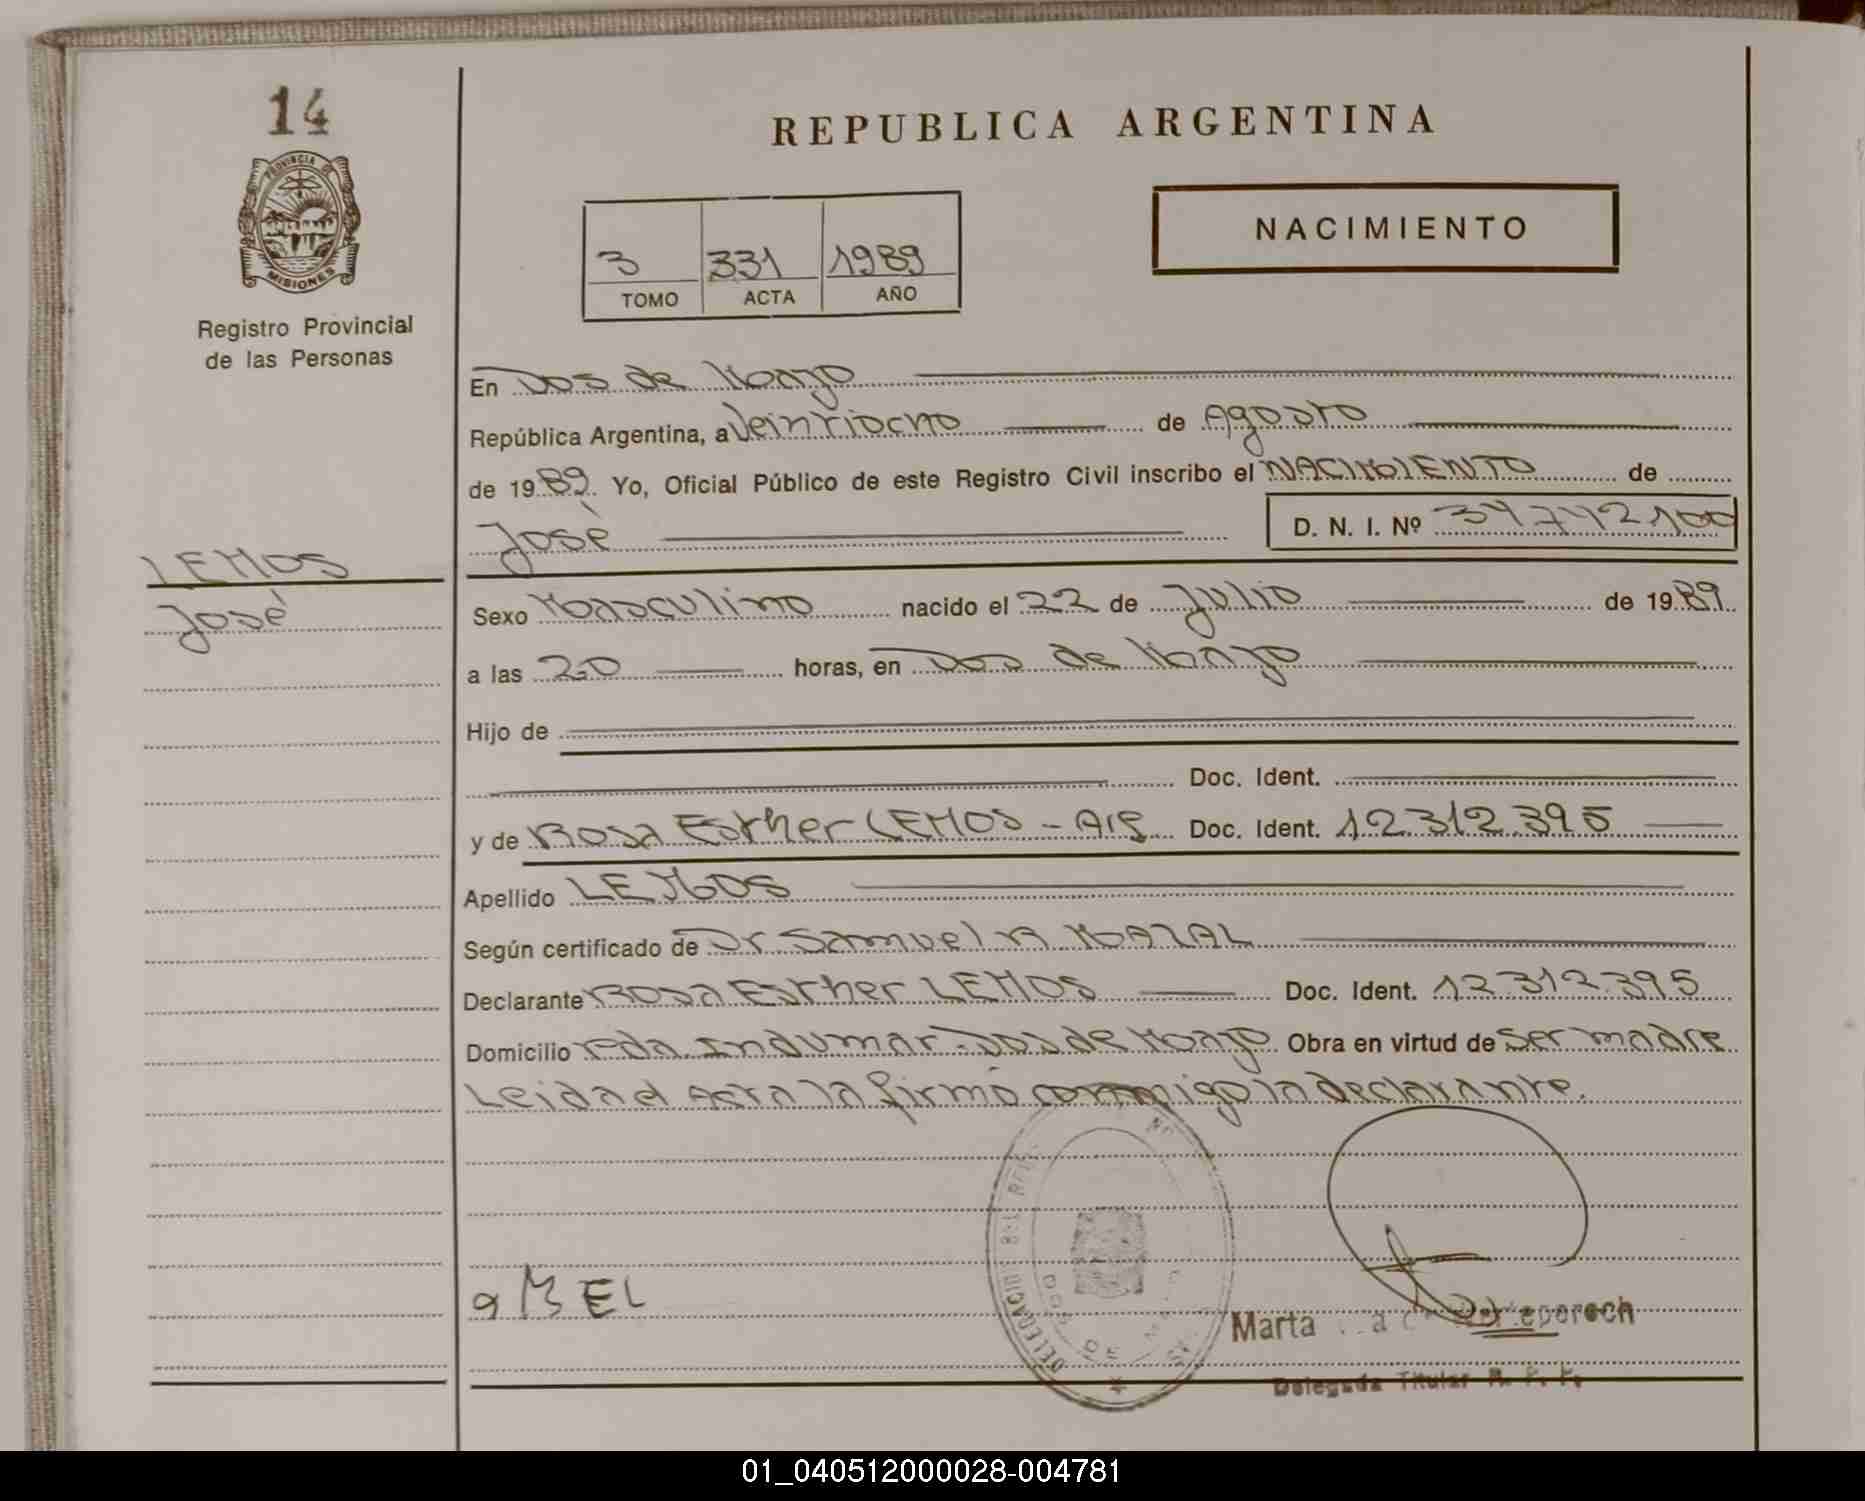 14
PROVINCIA DE
MISIONES
Registro Provincial
de las Personas
REPUBLICA ARGENTINA
3 331 1989
TOMO ACTA AÑO
NACIMIENTO
En Dos de Mayo
República Argentina, a Veintiocho de Agosto
de 1989 Yo, Oficial Público de este Registro Civil inscribo el NACIMIENTO de
José D. N. I. Nº 34742100
LEMOS
José
Sexo Masculino nacido el 22 de Julio de 1989
a las 20 horas, en Dos de Mayo
Hijo de
Doc. Ident.
y de Rosa Esther LEMOS - Arg Doc. Ident. 12.312.395
Apellido LEMOS
Según certificado de Dr Samuel R MAZAL
Declarante Rosa Esther LEMOS Doc. Ident. 12.312.395
Domicilio Pda. Indumar - Dos de Mayo Obra en virtud de Ser madre
Leida el Acta la firmó conmigo la declarante.
DELEGACION DEL
DOS DE MAYO
Marta
Delegada Titular R. P. P.
01_040512000028-004781